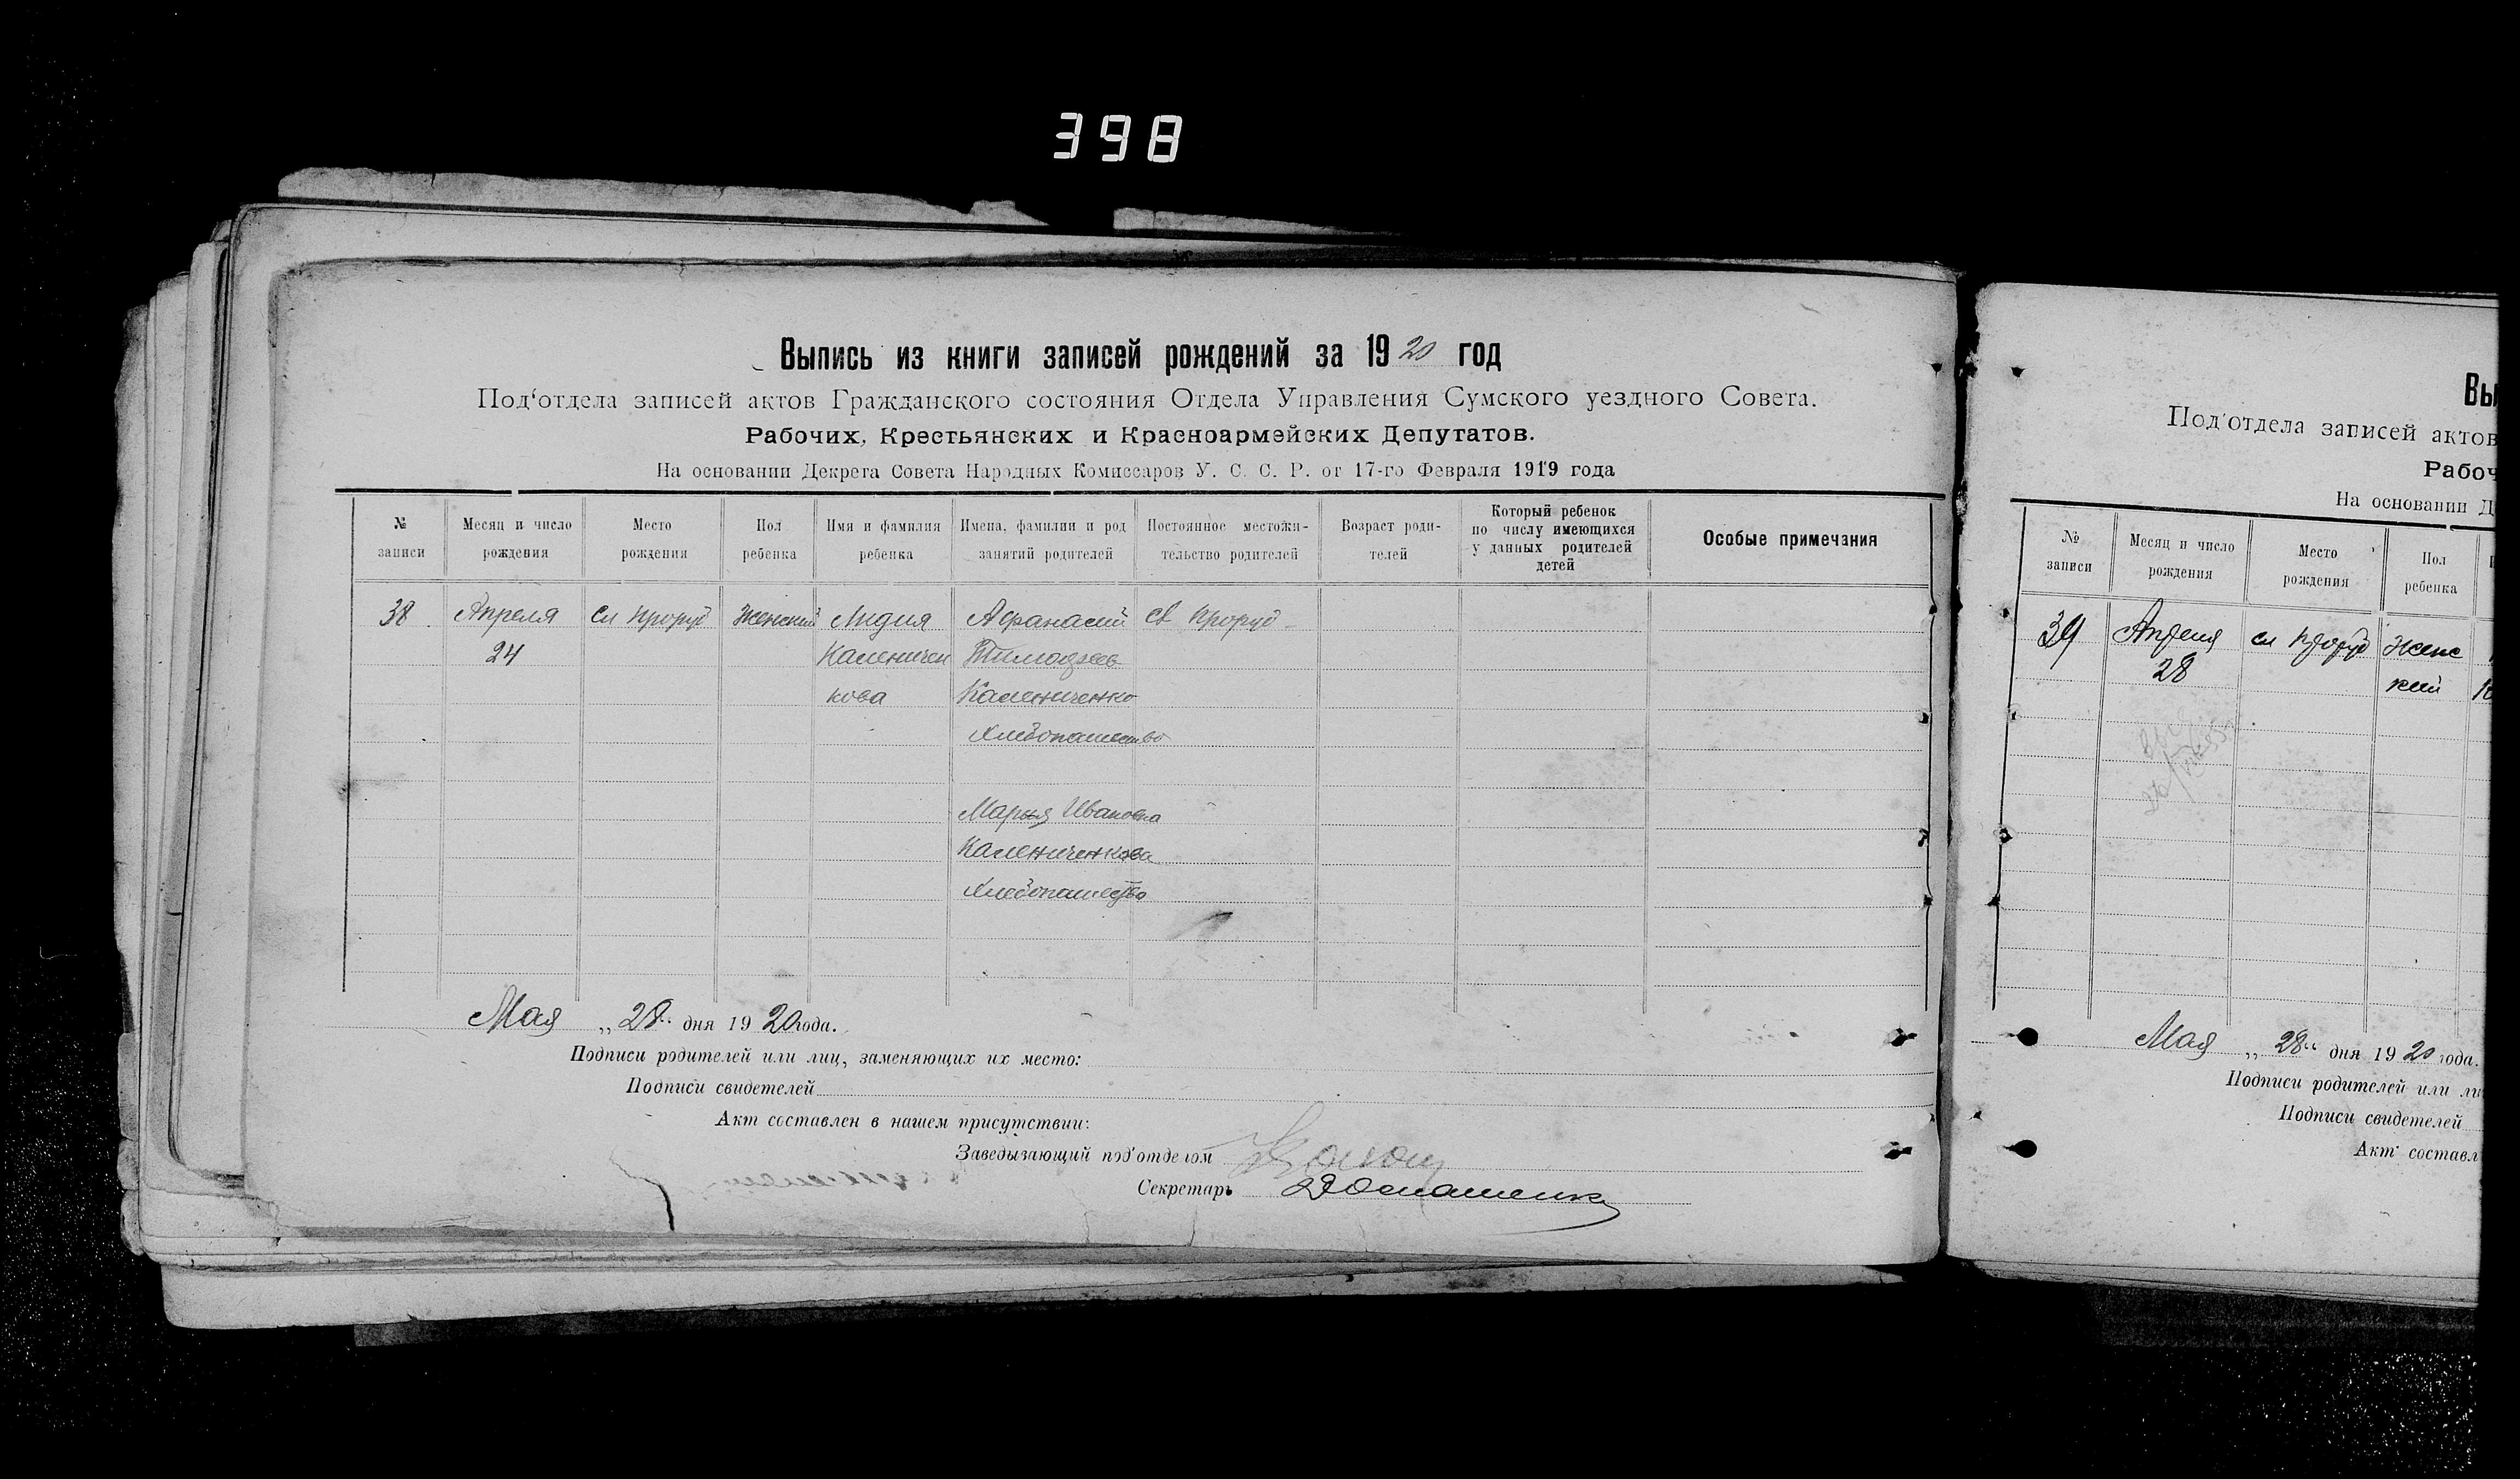 398
Выпись из книги записей рождений за 1920 год
Под‘отдела записей актов Гражданского состояния Отдела Управления Сумского уездного Совета.
Рабочих, Крестьянских и Красноармейских Депутатов.
На основании Декрета Совета Народных Комиссаров У. С. С. Р. от 17-го Февраля 1919 года
№ записи
Месяц и число рождения
Место рождения
Пол ребенка
Имя и фамилия ребенка
Имена, фамилии и род занятий родителей
Постоянное местожительство родителей
Возраст родителей
Который ребенок по числу имеющихся у данных родителей детей
Особые примечания
38 Апреля сл Проруб Женский Лидия Афанасий сл Проруб
24 Каленичен Тимофеев
кова Каленниченко
Хлебопашество
Марья Ивановна
Каленниченкова
Хлебопашество
Мая „28“ дня 1920 года.
Подписи родителей или лиц, заменяющих их место:
Подписи свидетелей
Акт составлен в нашем присутствии:
Заведывающий под‘отделом
Секретарь
Вы
Под‘отдела записей актов
Рабоч
На основании Д
№ записи
Месяц и число рождения
Место рождения
Пол ребенка
39 Апреля сл Проруб Женс
28 кий
Мая „28“ дня 1920 года.
Подписи родителей или ли
Подписи свидетелей
Акт составл